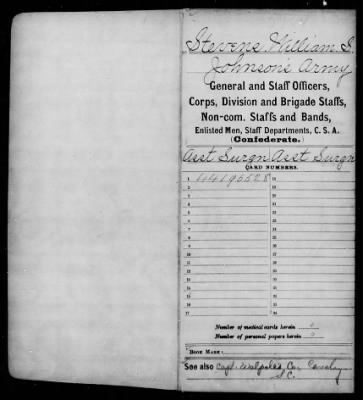 Stevens, William S.
Johnson's Army
General and Staff Officers,
Corps, Division and Brigade Staffs,
Non-com. Staffs and Bands,
Enlisted Men, Staff Departments, C. S. A.
(Confederate.)
Asst Surgn Asst Surgn
CARD NUMBERS.
1 44195528
2
3
4
5
6
7
8
9
10
11
12
13
14
15
16
17
Number of medical cards herein 0
Number of personal papers herein 0
BOOK MARK:
See also Capt. Walpole's Co. Cavalry
S.C.